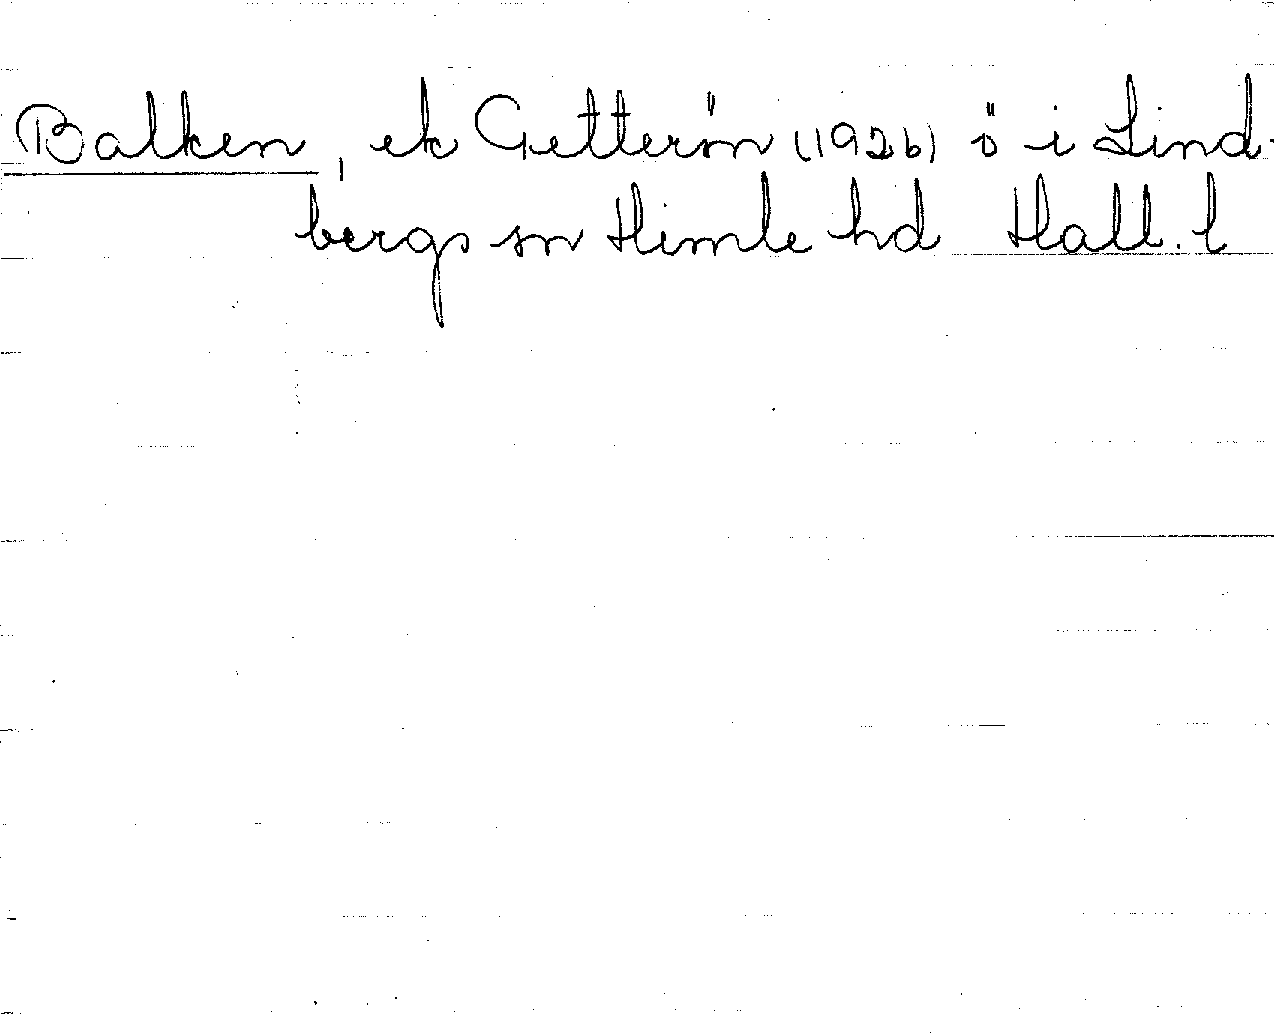 Balken, ek Getterön (1926) ö i Lind-
bergs sn Himle hd Hall. l